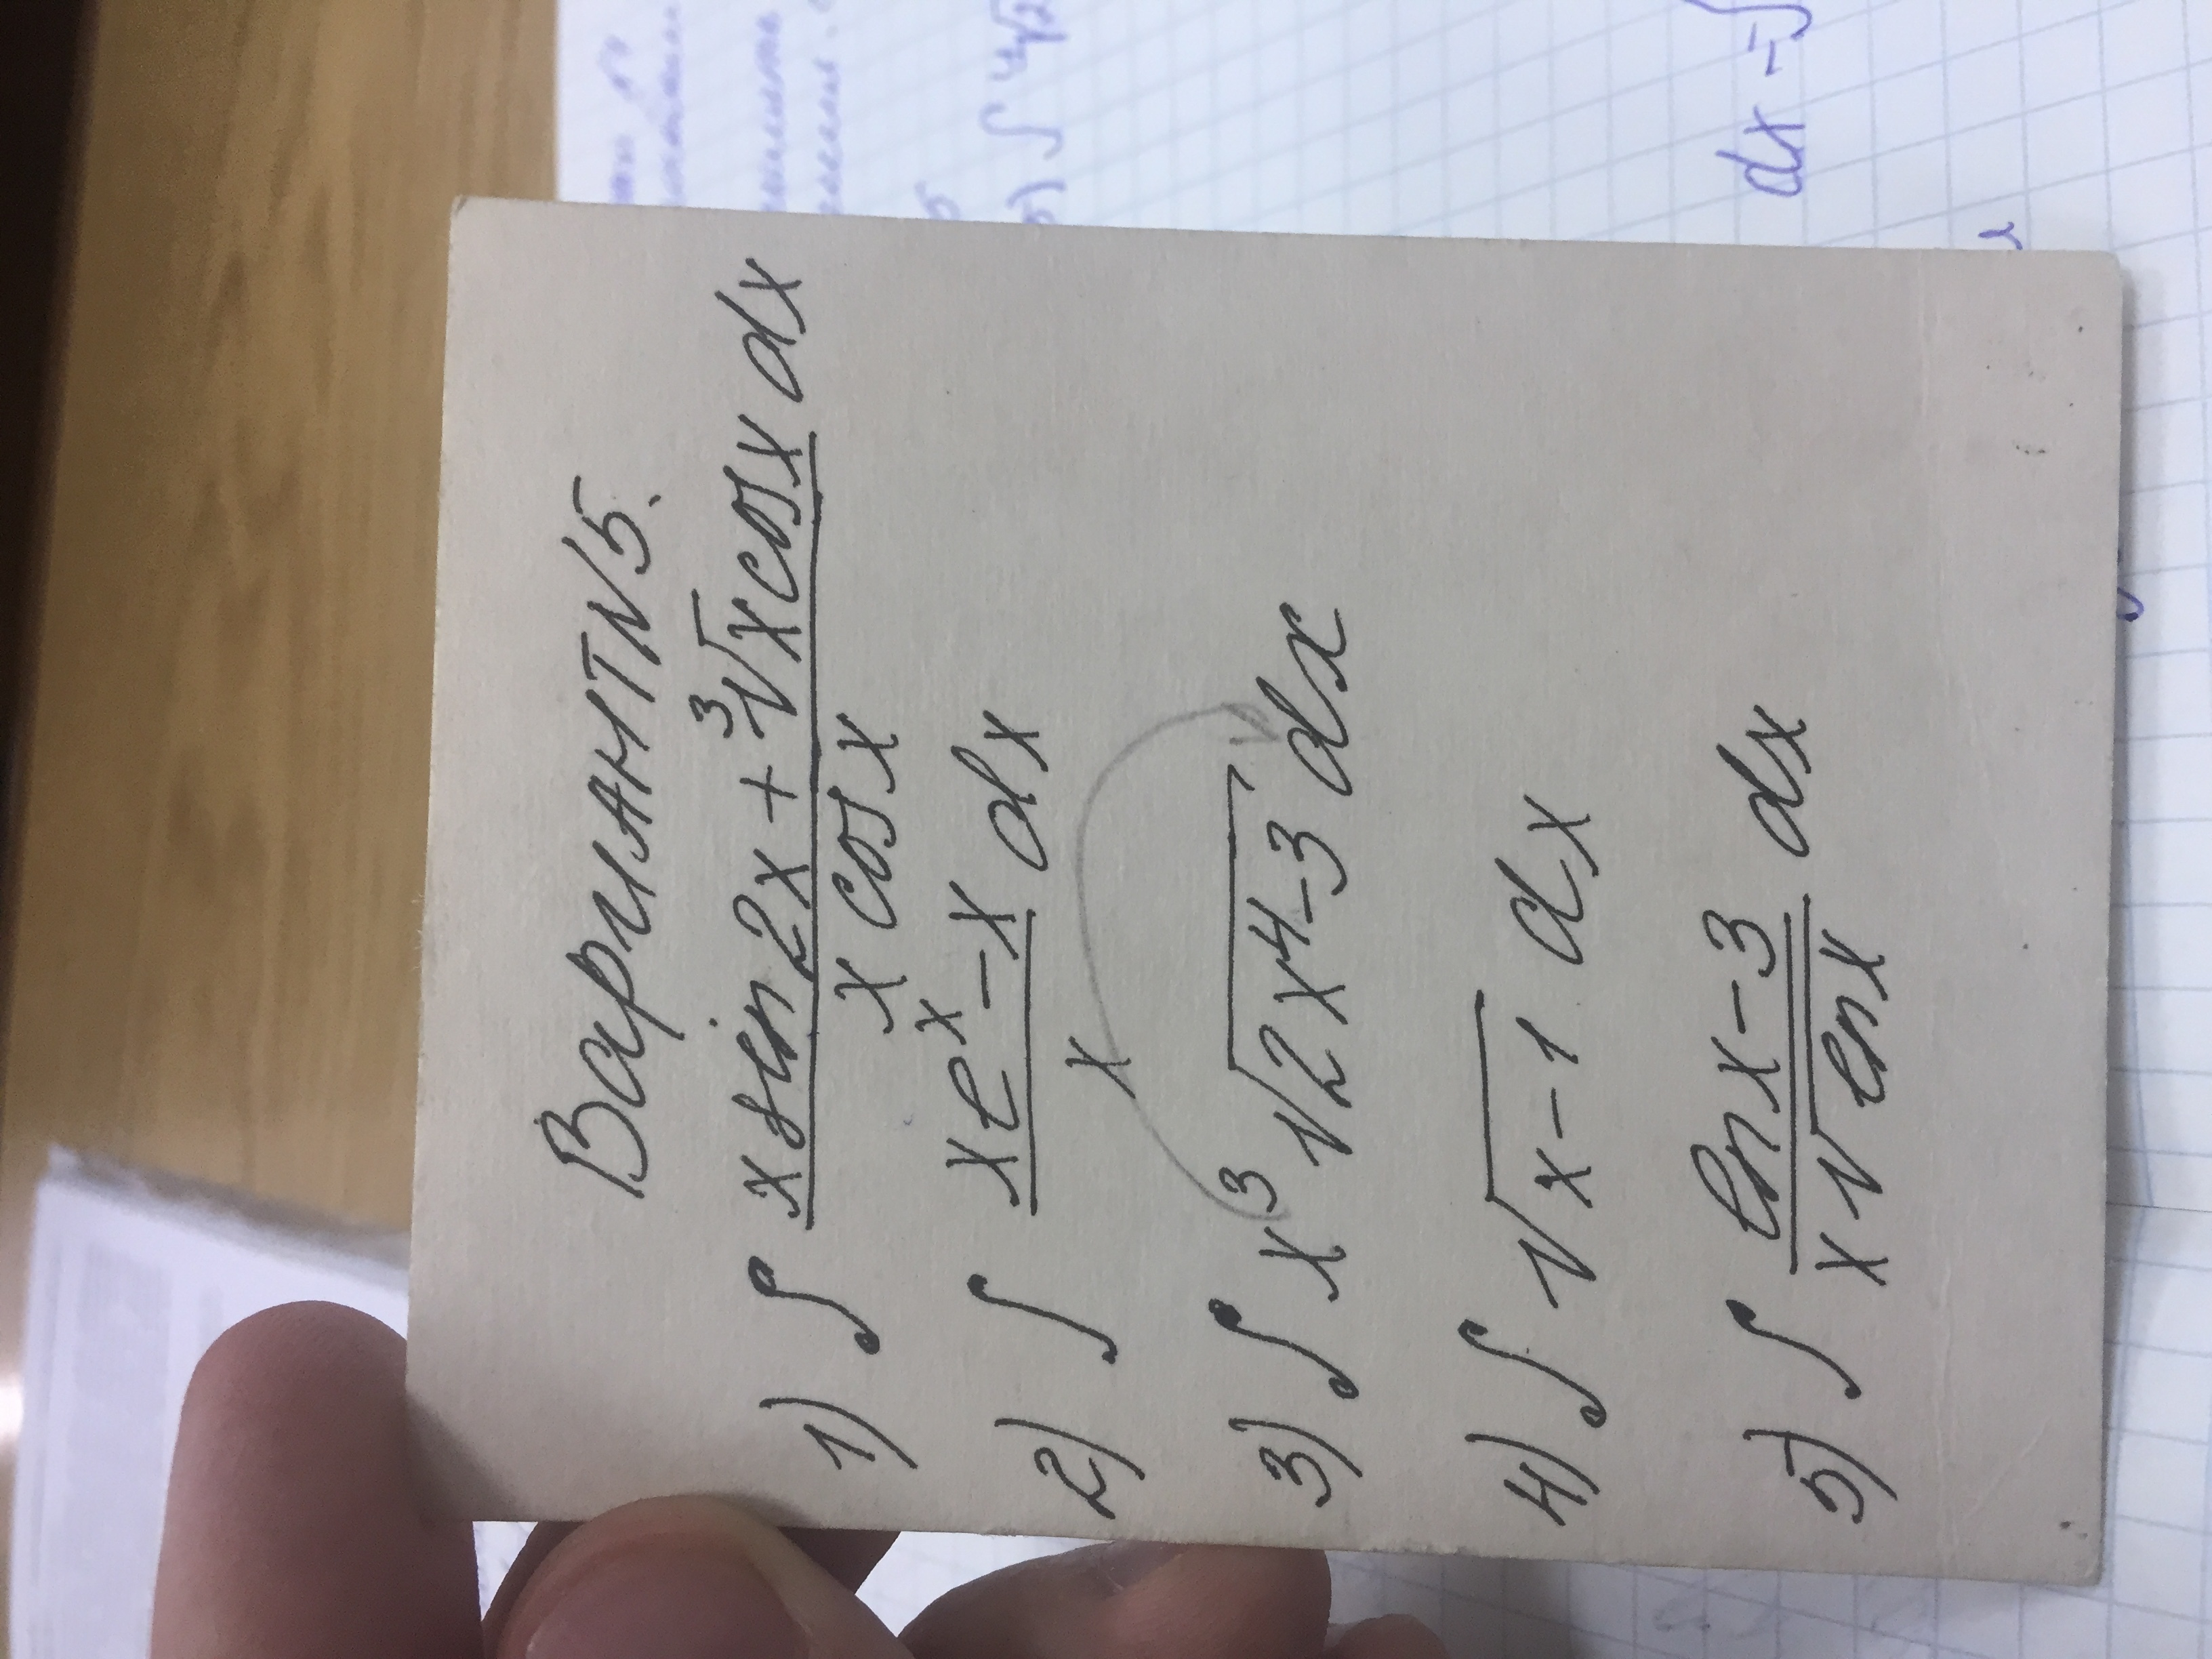 Вариант №5.
1) ∫ (x sin 2x + ³√x cos x)/(x cos x) dx
2) ∫ (xeˣ - x)/x dx
3) ∫ x³ √(2x⁴-3) dx
4) ∫ √(x-1) dx
5) ∫ (ln x - 3)/(x √(ln x)) dx
dx - ∫